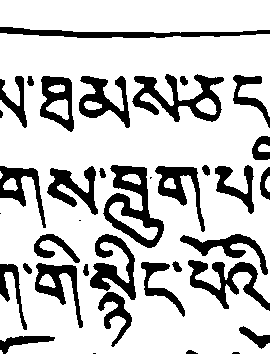 ས་ཐམས་ཅད
གས་བླུག་པའི
ག་གི་སྙིང་པོའི